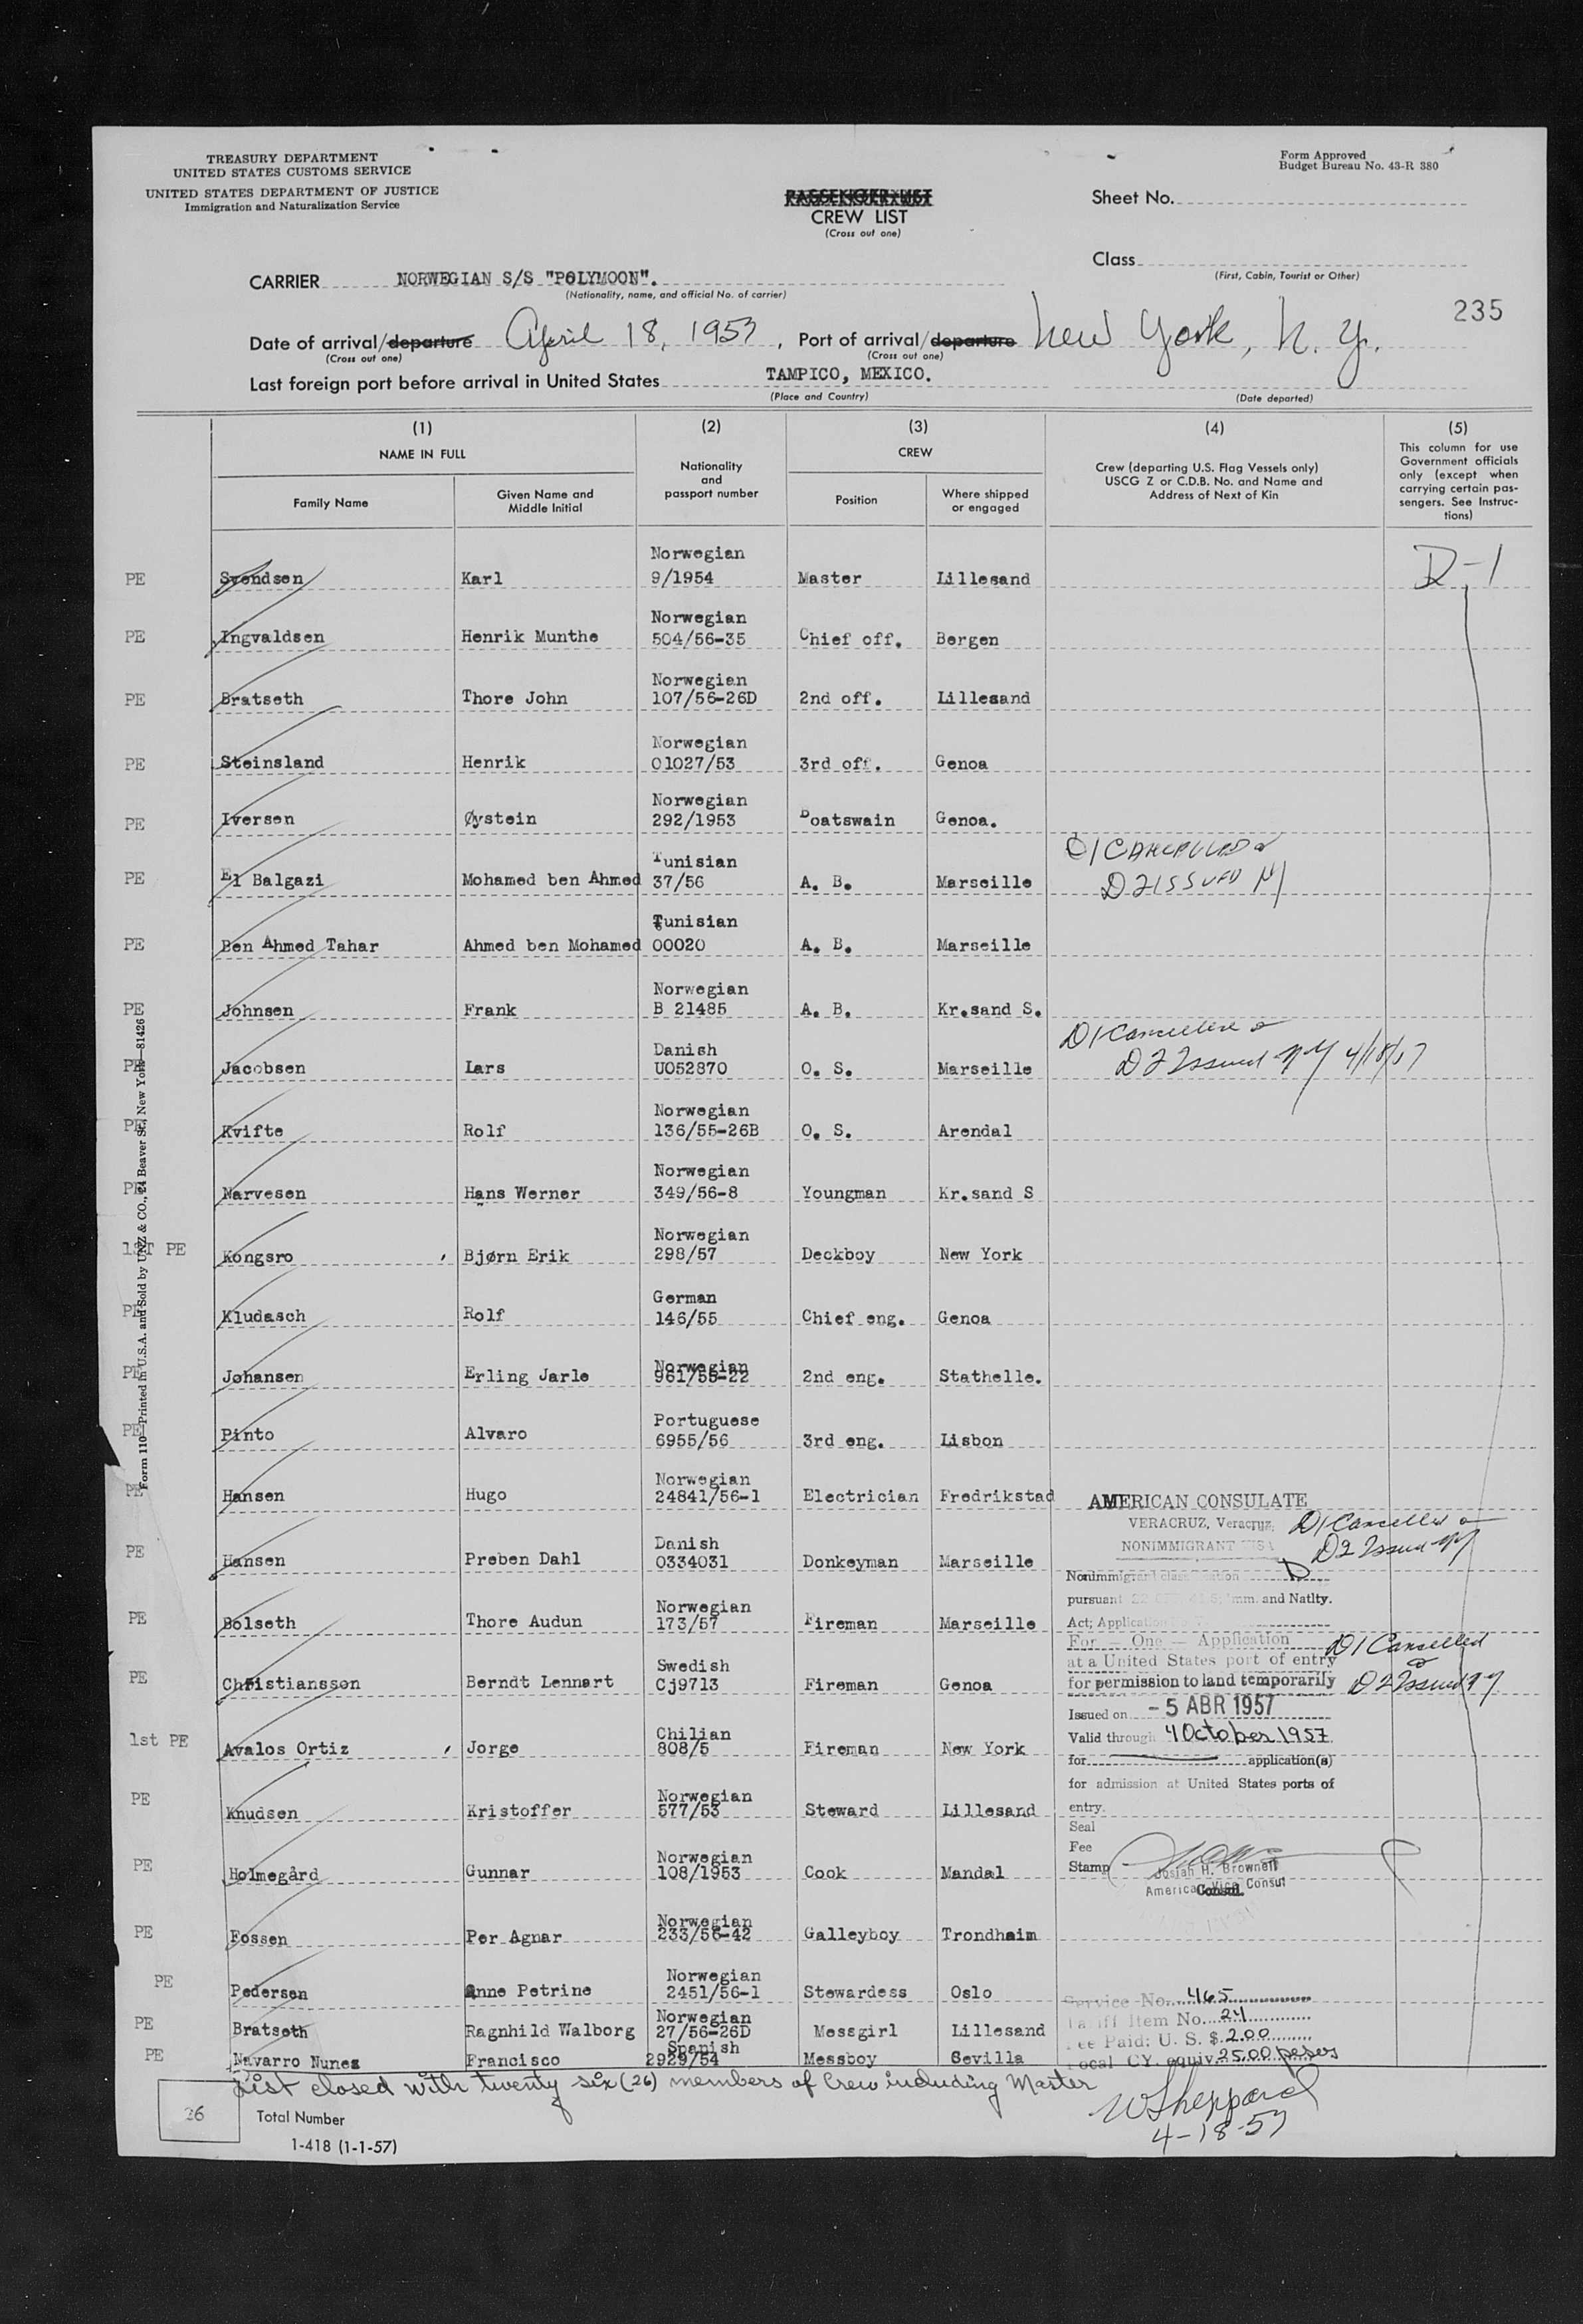 TREASURY DEPARTMENT
UNITED STATES CUSTOMS SERVICE
UNITED STATES DEPARTMENT OF JUSTICE
Immigration and Naturalization Service
Form Approved
Budget Bureau No. 43-R 380
PASSENGER LIST
CREW LIST
(Cross out one)
Sheet No.
Class
(First, Cabin, Tourist or Other)
CARRIER NORWEGIAN S/S "POLYMOON".
(Nationality, name, and official No. of carrier)
235
Date of arrival/departure April 18, 1957, Port of arrival/departure New York, N. Y.
(Cross out one) (Cross out one)
Last foreign port before arrival in United States TAMPICO, MEXICO.
(Place and Country) (Date departed)
(1) (2) (3) (4) (5)
NAME IN FULL
Family Name
Given Name and Middle Initial
Nationality and passport number
CREW
Position
Where shipped or engaged
Crew (departing U.S. Flag Vessels only)
USCG Z or C.D.B. No. and Name and
Address of Next of Kin
This column for use
Government officials
only (except when
carrying certain pas-
sengers. See Instruc-
tions)
Norwegian
PE Svendsen Karl 9/1954 Master Lillesand D-1
Norwegian
PE Ingvaldsen Henrik Munthe 504/56-35 Chief off. Bergen
Norwegian
PE Bratseth Thore John 107/56-26D 2nd off. Lillesand
Norwegian
PE Steinsland Henrik 01027/53 3rd off. Genoa
Norwegian
PE Iversen Øystein 292/1953 Boatswain Genoa.
Tunisian D1 CANCELLED &
PE El Balgazi Mohamed ben Ahmed 37/56 A. B. Marseille D2 ISSUED NY
Tunisian
PE Ben Ahmed Tahar Ahmed ben Mohamed 00020 A. B. Marseille
Norwegian
PE Johnsen Frank B 21485 A. B. Kr.sand S.
Danish D1 Cancelled &
PE Jacobsen Lars U052870 O. S. Marseille D2 Issued NY 4/18/57
Norwegian
PE Kvifte Rolf 136/55-26B O. S. Arendal
Norwegian
PE Narvesen Hans Werner 349/56-8 Youngman Kr.sand S
Norwegian
1ST PE Kongsro , Bjørn Erik 298/57 Deckboy New York
German
PE Kludasch Rolf 146/55 Chief eng. Genoa
Norwegian
PE Johansen Erling Jarle 961/55-22 2nd eng. Stathelle.
Portuguese
PE Pinto Alvaro 6955/56 3rd eng. Lisbon
Norwegian
PE Hansen Hugo 24841/56-1 Electrician Fredrikstad
Danish
PE Hansen Preben Dahl 0334031 Donkeyman Marseille
Norwegian
PE Bolseth Thore Audun 173/57 Fireman Marseille
Swedish
PE Christiansson Berndt Lennart Cj9713 Fireman Genoa
Chilian
1st PE Avalos Ortiz , Jorge 808/5 Fireman New York
Norwegian
PE Knudsen Kristoffer 577/53 Steward Lillesand
Norwegian
PE Holmegård Gunnar 108/1953 Cook Mandal
Norwegian
PE Fossen Per Agnar 233/56-42 Galleyboy Trondhaim
Norwegian
PE Pedersen Anne Petrine 2451/56-1 Stewardess Oslo
Norwegian
PE Bratseth Ragnhild Walborg 27/56-26D Messgirl Lillesand
Spanish
PE Navarro Nunez Francisco 2929/54 Messboy Sevilla
AMERICAN CONSULATE
VERACRUZ, Veracruz,
NONIMMIGRANT VISA
D1 Cancelled &
D2 Issued NY
Nonimmigrant classification D
pursuant Imm. and Natlty.
Act; Application
For — One — Application
at a United States port of entry
for permission to land temporarily
D1 Cancelled
&
D2 Issued NY
Issued on - 5 ABR 1957
Valid through 4 October 1957
for application(s)
for admission at United States ports of
entry.
Seal
Fee
Stamp
Josiah H. Brownell
American Vice Consul
Consul
Service No. 465
Tariff Item No. 24
Fee Paid: U. S. $ 2.00
Local CY. equiv. 25.00 pesos
List closed with twenty six (26) members of Crew including Master
WSheppard
4-18-57
26 Total Number
1-418 (1-1-57)
Form 110—Printed in U.S.A. and Sold by UNZ & CO., 24 Beaver St., New York—81426